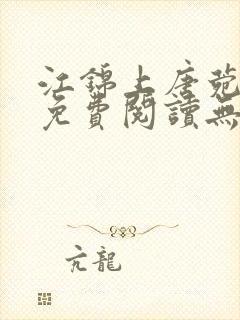 江錦上唐菀
免費閱讀無
亢龍